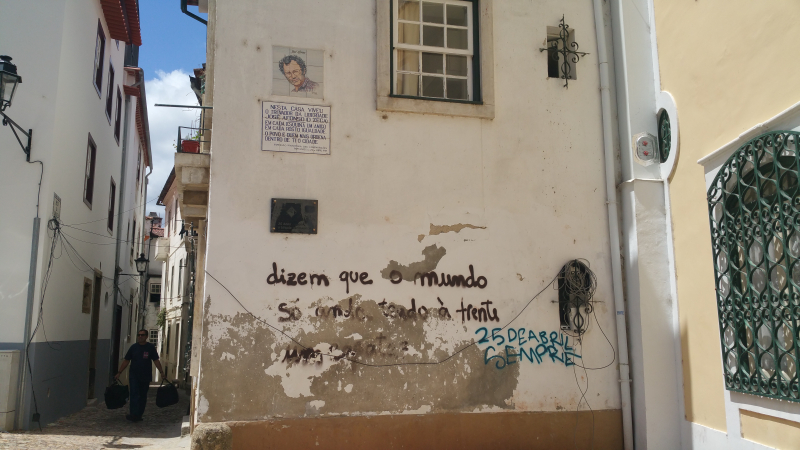 NESTA CASA VIVEU
O TROVADOR DA LIBERDADE
JOSÉ AFONSO (O ZECA)
EM CADA ESQUINA UM AMIGO
EM CADA ROSTO IGUALDADE
O POVO É QUEM MAIS ORDENA
DENTRO DE TI Ó CIDADE
dizem que o mundo
só anda tendo à frente
25 DE ABRIL
SEMPRE